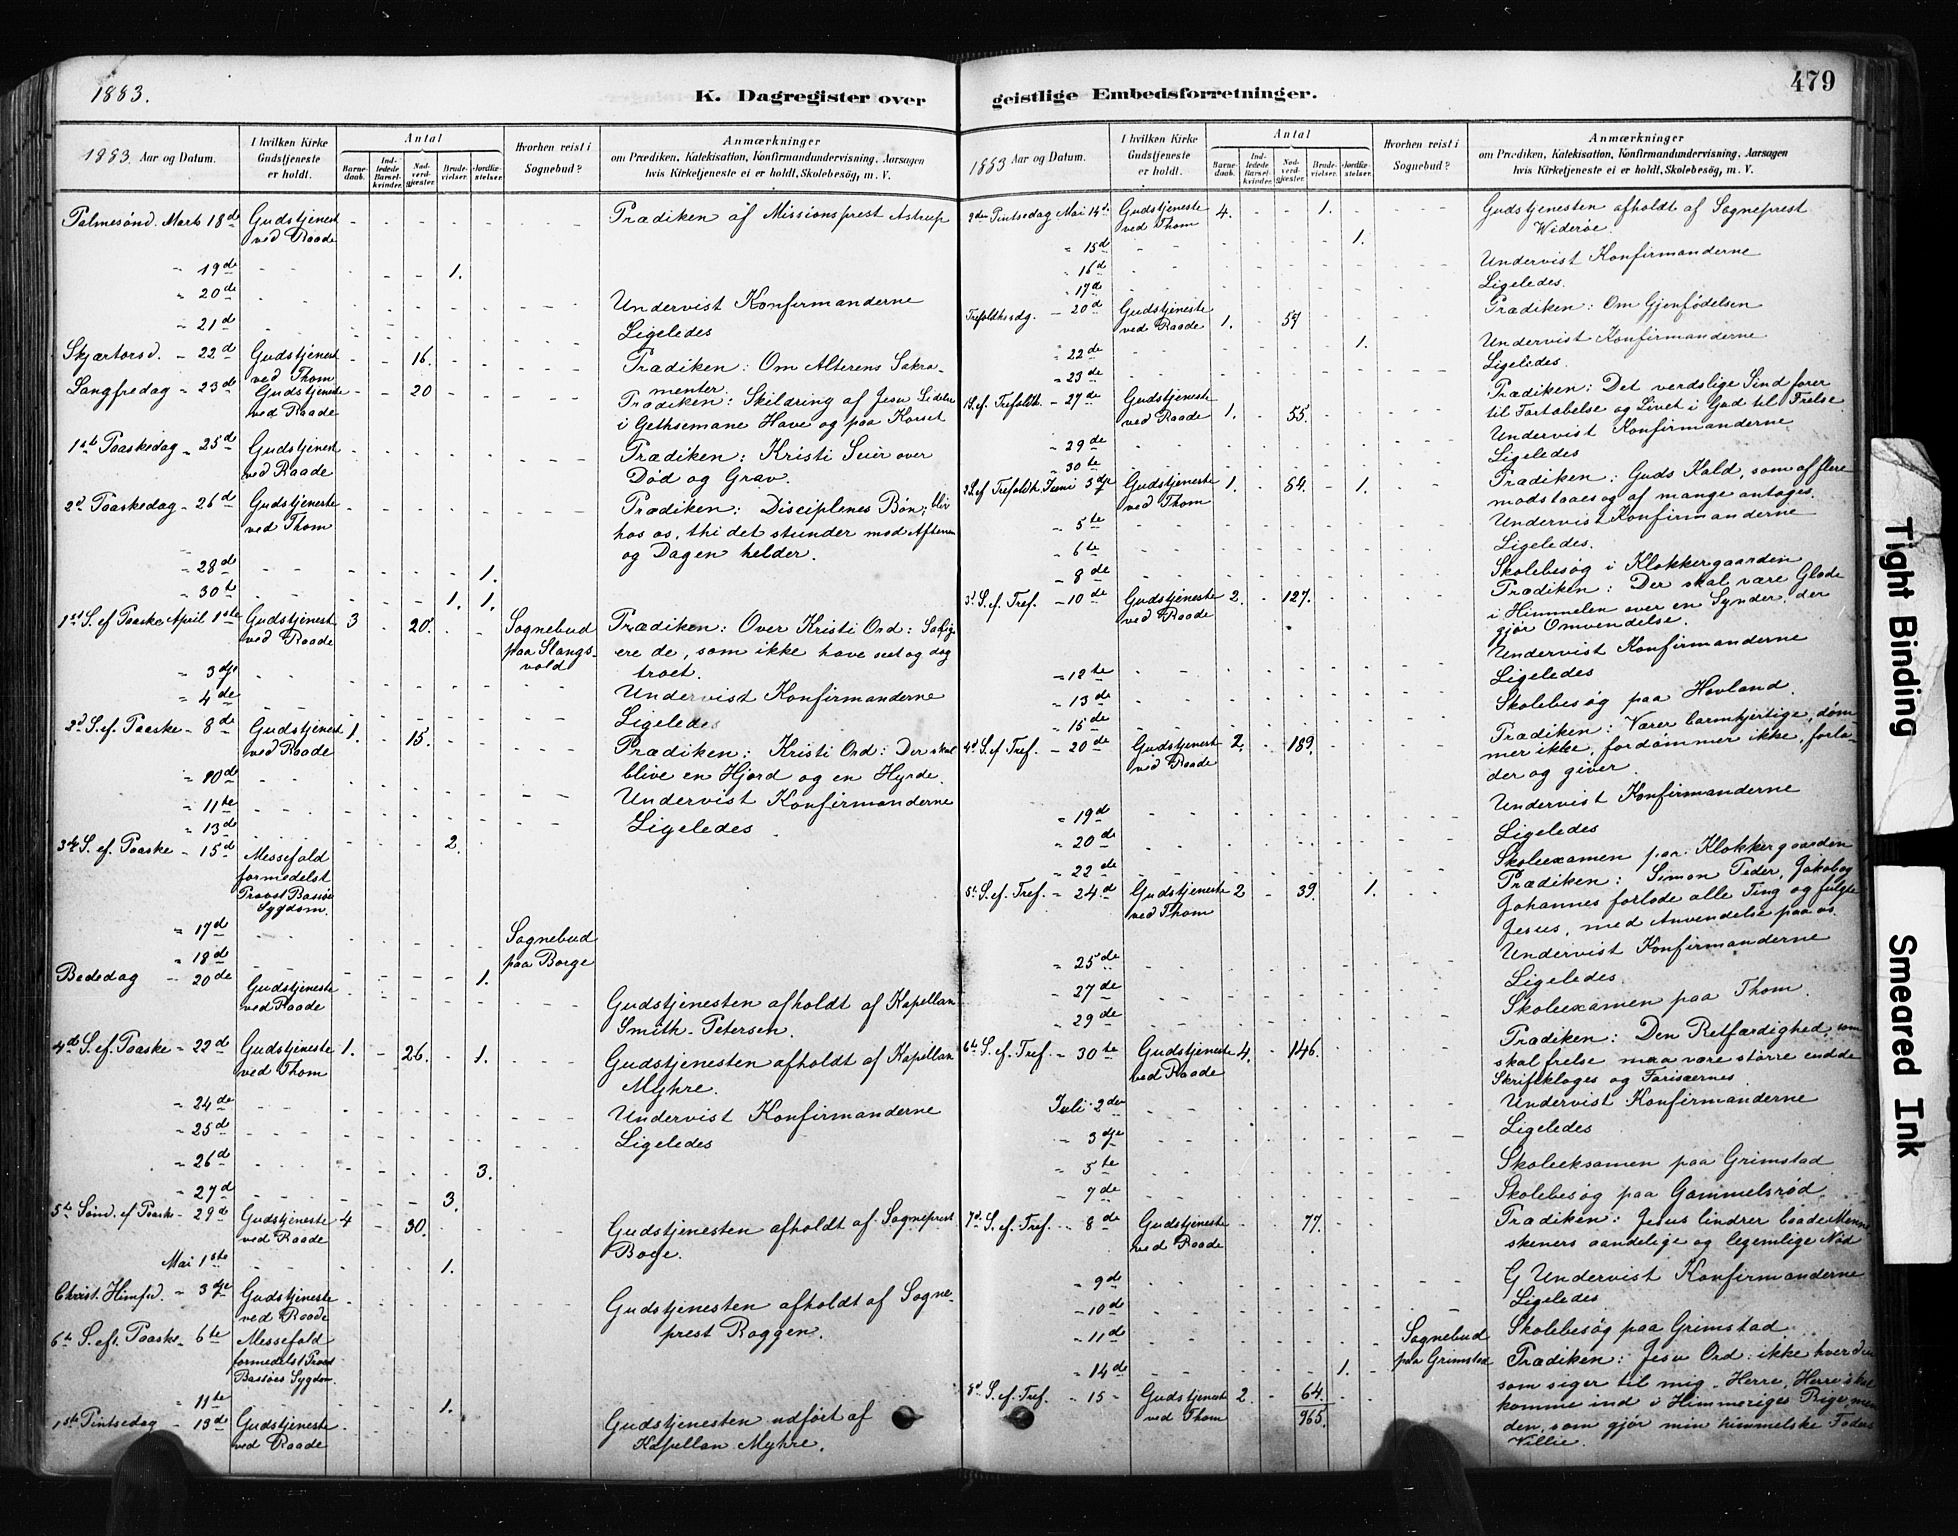 1883.
K. Dagregister over
1883. Aar og Datum.
I hvilken Kirke Gudstjeneste er holdt.
Antal
Barne-daab.
Ind-ledede Barsel-kvinder.
Nad-verd-gjæster.
Brude-vielser.
Jordfæ-stelser.
Hvorhen reist i Sognebud?
Anmærkninger
om Prædiken, Katekisation, Konfirmandundervisning, Aarsagen
hvis Kirketjeneste ei er holdt, Skolebesøg, m. V.
Palmesønd. Marts 18d Gudstjenest - - - - - - - - Prædiken af Missionsprest Astrup
ved Raade
" 19de - - - - - - 1.
" 20de - - - - - - - - - Undervist Konfirmanderne
" 21d - - - - - - - - - Ligeledes
Skjærtorsd. - 22d Gudstjenest - - 16. - - - - - Prædiken: Om Alterens Sakra-
ved Thom menter
Langfredag - 23de Gudstjeneste - - 20 - - - - - Prædiken: Skildring af Jesu Lidelse
ved Raade i Gethsemane Have og paa Korset
1ste Paaskedag - 25d Gudstjenest - - - - - - - - Prædiken: Kristi Seier over
ved Raade Død og Grav.
2d Paaskedag - 26d Gudstjeneste - - - - - - - - Prædiken: Disciplenes Bøn: bliv
ved Thom hos os, thi det stunder mod Aftenen
og Dagen helder.
" 28d - - - - - - - 1.
" 30te - - - - - - 1. 1.
1st S. ef Paaske April 1ste Gudstjenest 3 - 20. - - Sognebud Prædiken: Over Kristi Ord: Salig-
ved Raade paa Slangs- ere de, som ikke have seet og dog
vold troet.
" 3dje - - - - - - - - - Undervist Konfirmanderne
" 4de - - - - - - - - - Ligeledes
2d S. ef. Paaske - 8de Gudstjenest 1. - 15. - - - - - Prædiken: Kristi Ord: Der skal
ved Raade blive en Hjord og en Hyrde.
" 10d - - - - - - - - - Undervist Konfirmanderne
" 11te - - - - - - - - - Ligeledes
" 13d - - - - - 2.
3de S. ef. Paaske - 15d Messefald
formedelst
Provst Bassøe
Sygdom.
" 17d - - - - - - - Sognebud
" 18d - - - - - - - paa Borge
Bededag - 20de Gudstjeneste - - - - 1. - - - Gudstjenesten afholdt af Kapellan
ved Raade Smith-Petersen.
4de S. ef. Paaske - 22d Gudstjeneste 1. - 26. - 1. - - - Gudstjenesten afholdt af Kapellan
ved Thom Myhre.
" 24de - - - - - - - - - Undervist Konfirmanderne
" 25d - - - - - - - - - Ligeledes
" 26d - - - - - - - 3.
" 27d - - - - - - 3.
5te Sønd. ef Paaske - 29d Gudstjeneste 4 - 30. - - - - - Gudstjenesten afholdt af Sogneprest
ved Raade Boye.
Mai 1ste - - - - - - 1.
Christ. Himf.d. - 3dje Gudstjeneste - - - - - - - - Gudstjenesten afholdt af Sogne-
ved Raade prest Roggen.
6te S. eft. Paaske - 6te Messefald
formedelst Provst
Bassøes Sygdom.
" 11te - - - - 1.
1ste Pintsedag - 13de Gudstjeneste Gudstjenesten udført af
ved Raade Kapellan Myhre.
479
geistlige Embedsforretninger.
1883 Aar og Datum.
I hvilken Kirke Gudstjeneste er holdt.
Antal
Barne-daab.
Ind-ledede Barsel-kvinder.
Nad-verd-gjæster.
Brude-vielser.
Jordfæ-stelser.
Hvorhen reist i Sognebud?
Anmærkninger
om Prædiken, Katekisation, Konfirmandundervisning, Aarsagen
hvis Kirketjeneste ei er holdt, Skolebesøg, m. V.
2den Pintsedag Mai 14de Gudstjeneste 4. - - 1. - - - - Gudstjenesten afholdt af Sogneprest
ved Thom Widerøe.
" 15d - - - - - - 1.
" 16d - - - - - - - - - Undervist Konfirmanderne
" 17d - - - - - - - - - Ligeledes.
Trefoldhsdg. - 20d Gudstjeneste 1. - 57 - - - - - Prædiken: Om Gjenfødelsen
ved Raade
1.
" 22de - - - - - - - - - Undervist Konfirmanderne
" 23de - - - - - - - - - Ligeledes.
1S. ef. Trefoldh. - 27de Gudstjeneste 1. - 55. - - - - - Prædiken: Det verdslige Sind fører
ved Raade til Fortabelse og Livet i Gud til Frelse
" 29de - - - - - - - - - Undervist Konfirmanderne
" 30te - - - - - - - - - Ligeledes
2S. ef Trefoldh. Juni 3dje Gudstjeneste 1. - 64. - 1. - - - Prædiken: Guds Kald, som af flere
ved Thom modstaaes og af mange antages.
" 5te - - - - - - - - - Undervist Konfirmanderne
" 6te - - - - - - - - - Ligeledes.
" 8de - - - - - - - - - Skolebesøg i Klokkergaarden
3d S. ef. Tref. - 10de Gudstjeneste 2. - 127. - - - - - Prædiken: Der skal være Glæde
ved Raade i Himmelen over en Synder, der
gjør Omvendelse.
" 12te - - - - - - - - - Undervist Konfirmanderne
" 13de - - - - - - - - - Ligeledes
" 15de - - - - - - - - - Skolebesøg paa Hovland.
4d S. ef Tref. - 20de Gudstjenest 2. - 189. - - - - - Prædiken: Værer barmhjertige, døm-
ved Raade mer ikke, fordømmer ikke, forla-
der og giver
" 19d - - - - - - - - - Undervist Konfirmanderne
" 20de - - - - - - - - - Ligeledes
" 22de - - - - - - - - - Skoleexamen paa Klokkergaarden
5te S. ef. Tref. - 24d Gudstjeneste 2 - 39. - 1. - - - Prædiken: Simon Peder, Jakob og
ved Thom Johannes forlode alle Ting og fulgte
Jesus, med Anvendelse paa os.
" 25de - - - - - - - - - Undervist Konfirmanderne
" 27de - - - - - - - - - Ligeledes.
" 29de - - - - - - - - - Skoleexamen paa Thom.
6te S. ef. Tref. - 30te Gudstjeneste 4. - 146. - - - - - Prædiken: Den Retfærdighed, som
ved Raade skal frelse maa være større end de
Skriftkloges og Farisæernes
Juli 2den - - - - - - - - - Undervist Konfirmanderne
" 3dje - - - - - - - - - Ligeledes
" 5te - - - - - - - - - Skoleeksamen paa Grimstad.
" 7de - - - - - - - - - Skolebesøg paa Gammelsrød.
7d S. ef Tref. - 8de Gudstjeneste - - 77. - - - - - Prædiken: Jesus lindrer baade Menne-
ved Raade skeners aandelige og legemlige Nød
" 9de - - - - - - - - - G Undervist Konfirmanderne
" 10de - - - - - - - - - Ligeledes
" 11d - - - - - - - Sognebud Skolebesøg paa Grimstad
" 14de - - - - - 1. paa Grimstad Prædiken: Jesu Ord: ikke hver den
8d. S. ef. Tref. - 15 - Gudstjeneste 2 - 64. - - som siger til mig Herre, Herre skal
ved Thom 965. komme ind i Himmeriges Rige, men
den, som gjør min himmelske Faders
Villie.
Tight Binding
Smeared Ink